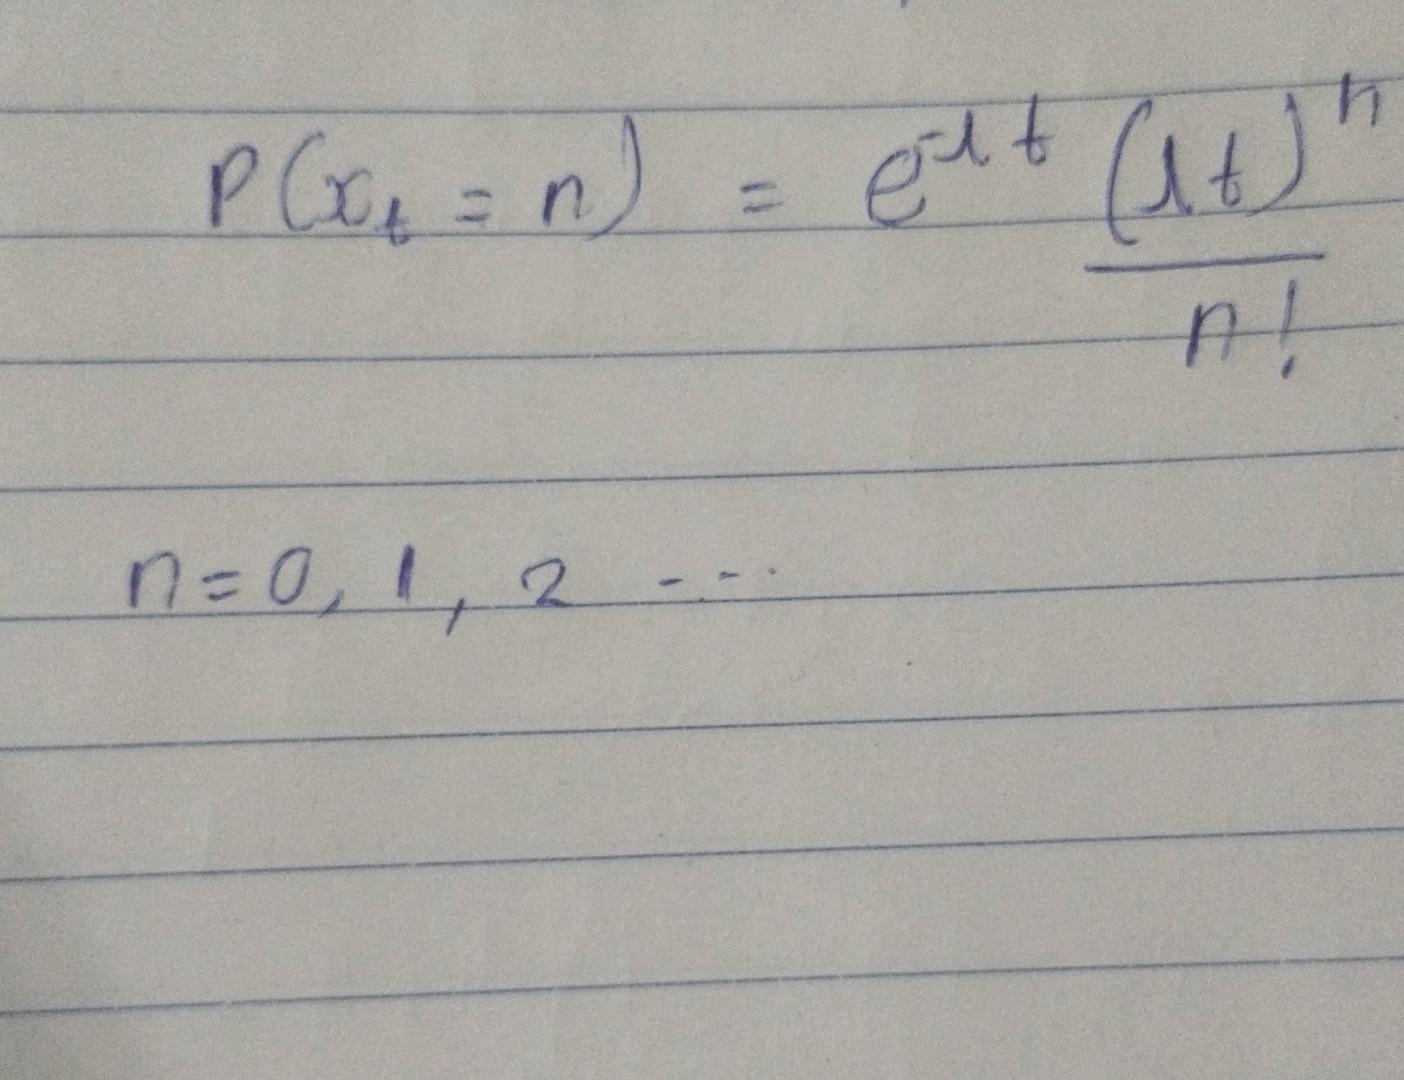 P(x_t = n) = e^{-λt} \frac{(λt)^n}{n!}
n = 0, 1, 2 ----